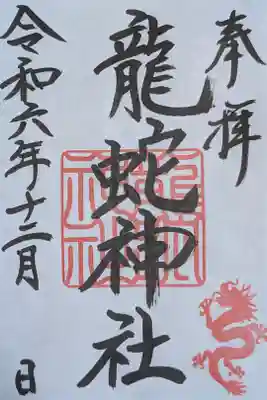 奉拝
龍蛇神社
令和六年十二月 日